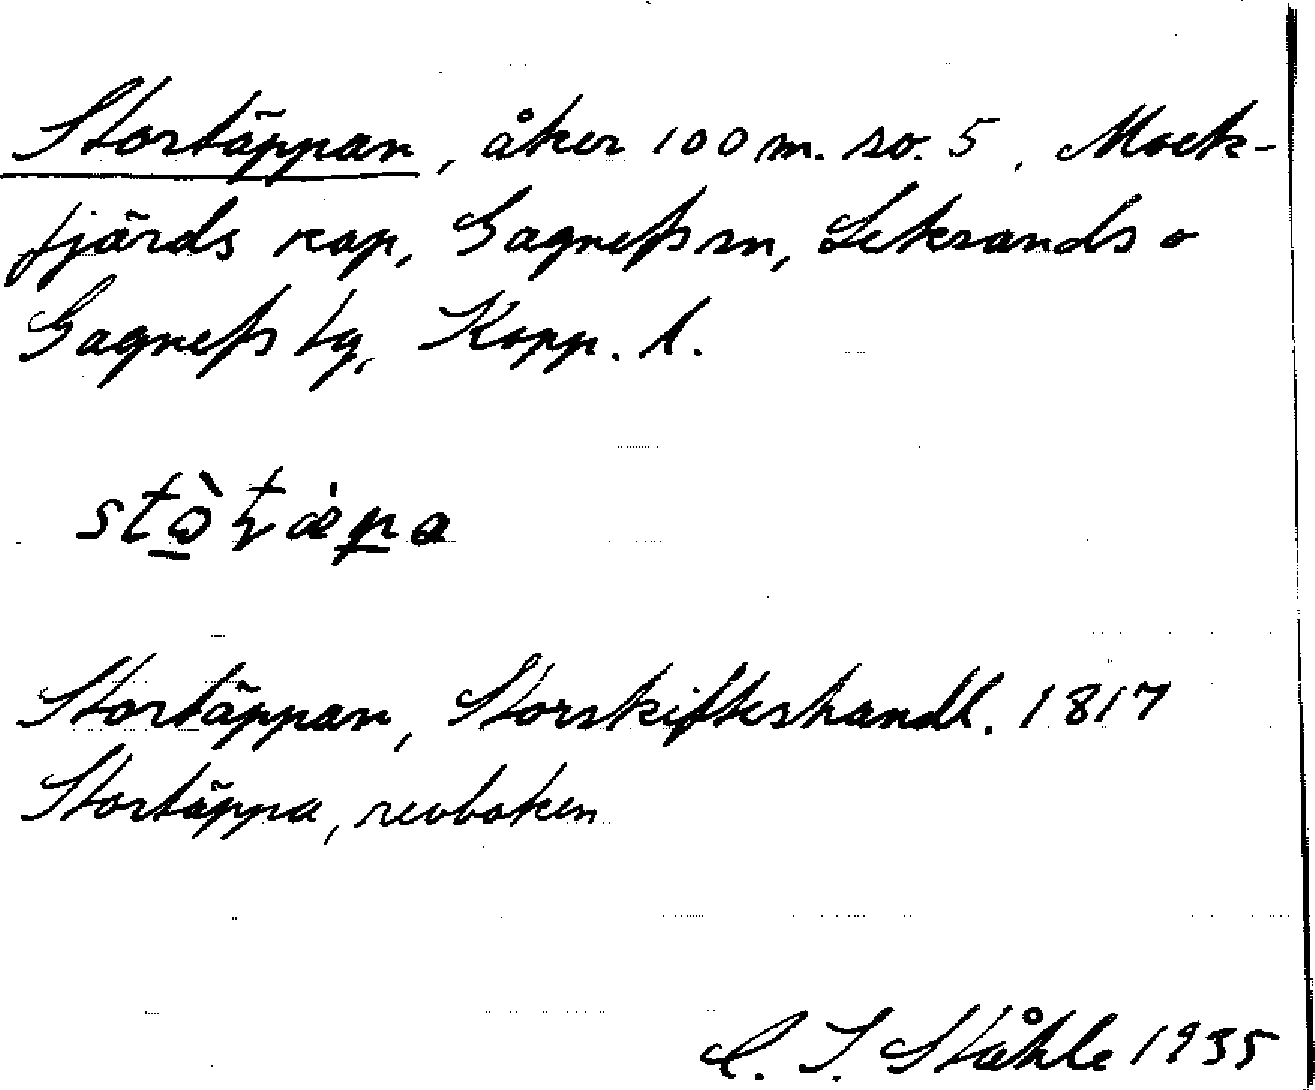 Stortäppan, åker 100 m. so. 5, Mock-
fjärds kap, Gagnefs sn, Leksands o
Gagnefs tg, Kopp. l.
Stortäppan, Storskifteshandl. 1817
Stortäppa, revboken
C. I. Ståhle 1935